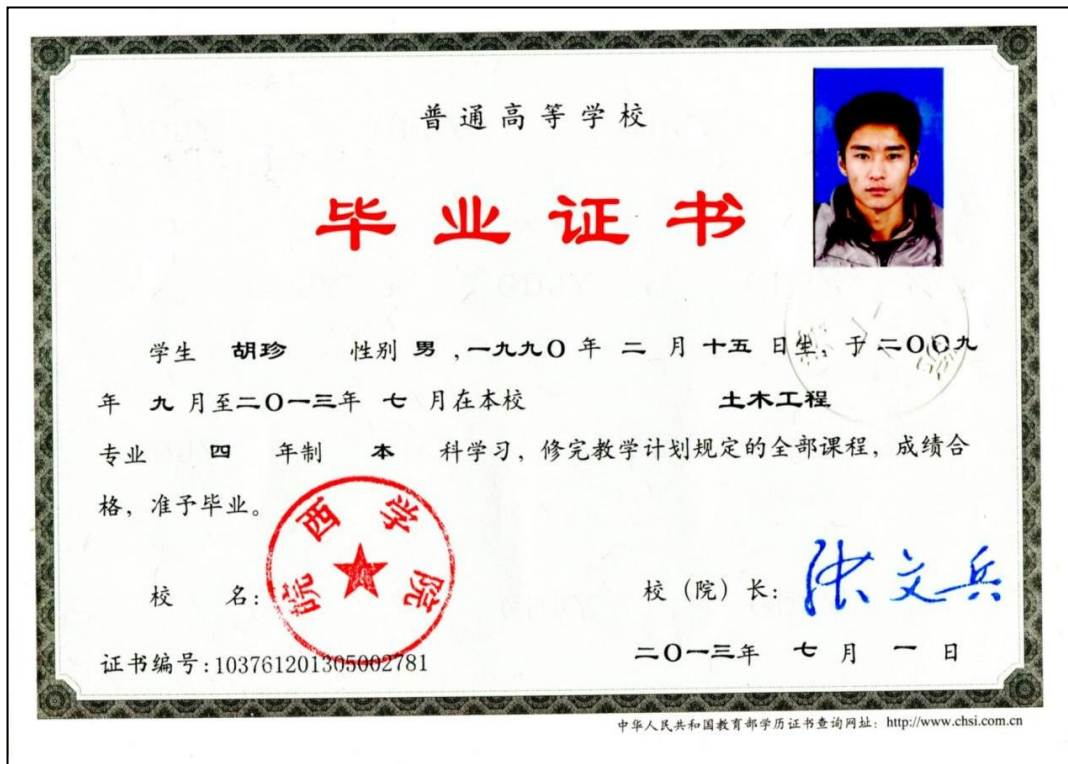 普通高等学校
毕业证书
学生 胡珍 性别 男 ,一九九〇 年 二 月 十五 日生, 于 二〇〇九
年 九 月至二〇一三年 七 月在本校 土木工程
专业 四 年制 本 科学习, 修完教学计划规定的全部课程, 成绩合
格, 准予毕业。
皖西学院
校 名: 校 (院) 长: 张文兵
证书编号:103761201305002781 二〇一三年 七 月 一 日
中华人民共和国教育部学历证书查询网址: http://www.chsi.com.cn